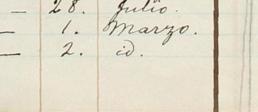 — 28. Julio.
— 1. Marzo.
— 2. id.